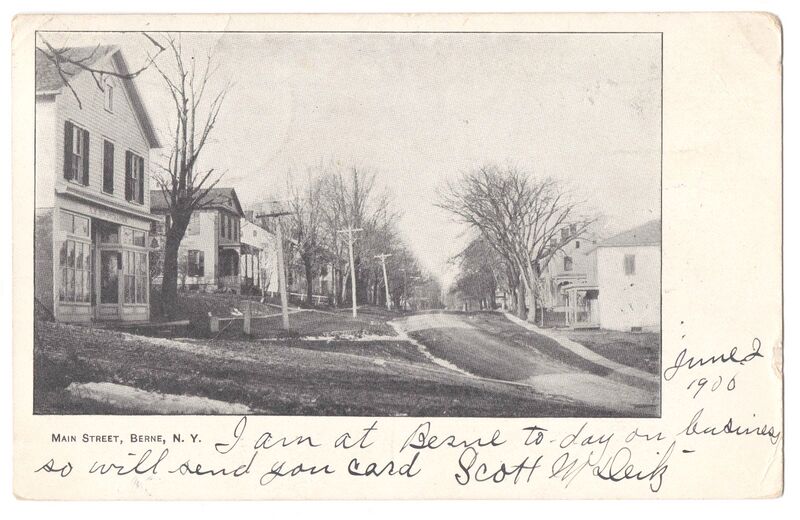 June 2
1906
MAIN STREET, BERNE, N. Y.
I am at Berne to-day on business
so will send you card Scott W Deitz